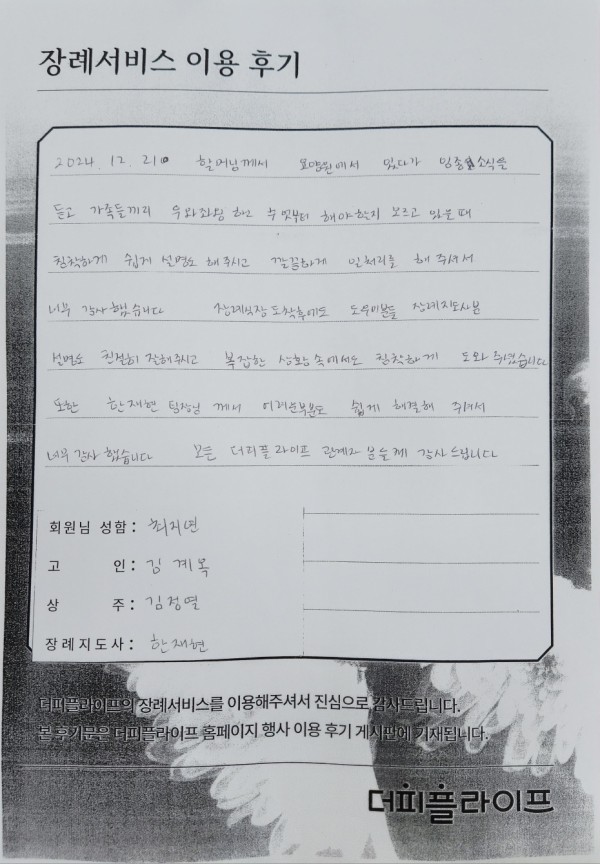 장례서비스 이용 후기
2024. 12. 21 할머님께서 요양원에서 있다가 임종 소식을
듣고 가족들끼리 우왕좌왕 하고 무엇부터 해야할지 모르고 있을때
침착하게 쉽게 설명도 해주시고 깔끔하게 일처리를 해 주셔서
너무 감사했습니다 장례식장 도착후에도 도우미분들 장례지도사분
설명도 친절히 잘해주시고 복잡한 상황속에서도 침착하게 도와주셨습니다
또한 한재현 팀장님 께서 어려운부분도 쉽게 해결해 주셔서
너무 감사했습니다 모든 더피플라이프 관계자 분들께 감사드립니다
회원님 성함: 최지연
고 인: 김계옥
상 주: 김정열
장례지도사: 한재현
더피플라이프의 장례서비스를 이용해주셔서 진심으로 감사드립니다.
본 후기문은 더피플라이프 홈페이지 행사 이용 후기 게시판에 기재됩니다.
더피플라이프